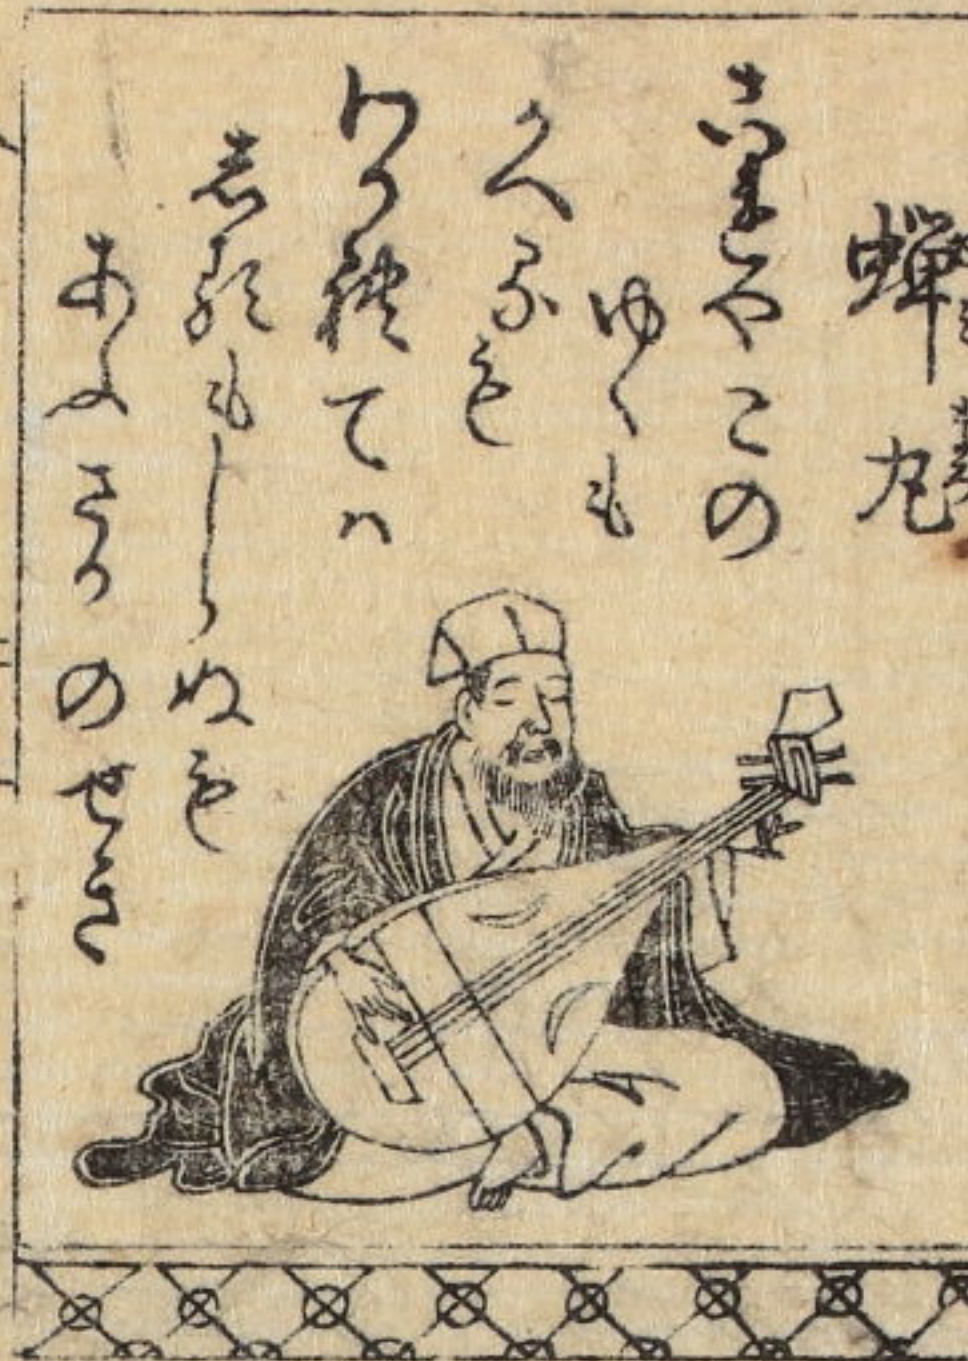 蝉丸
これやこの
ゆくも
かへるも
わかれてハ
志るもしらぬも
あふさかのせき